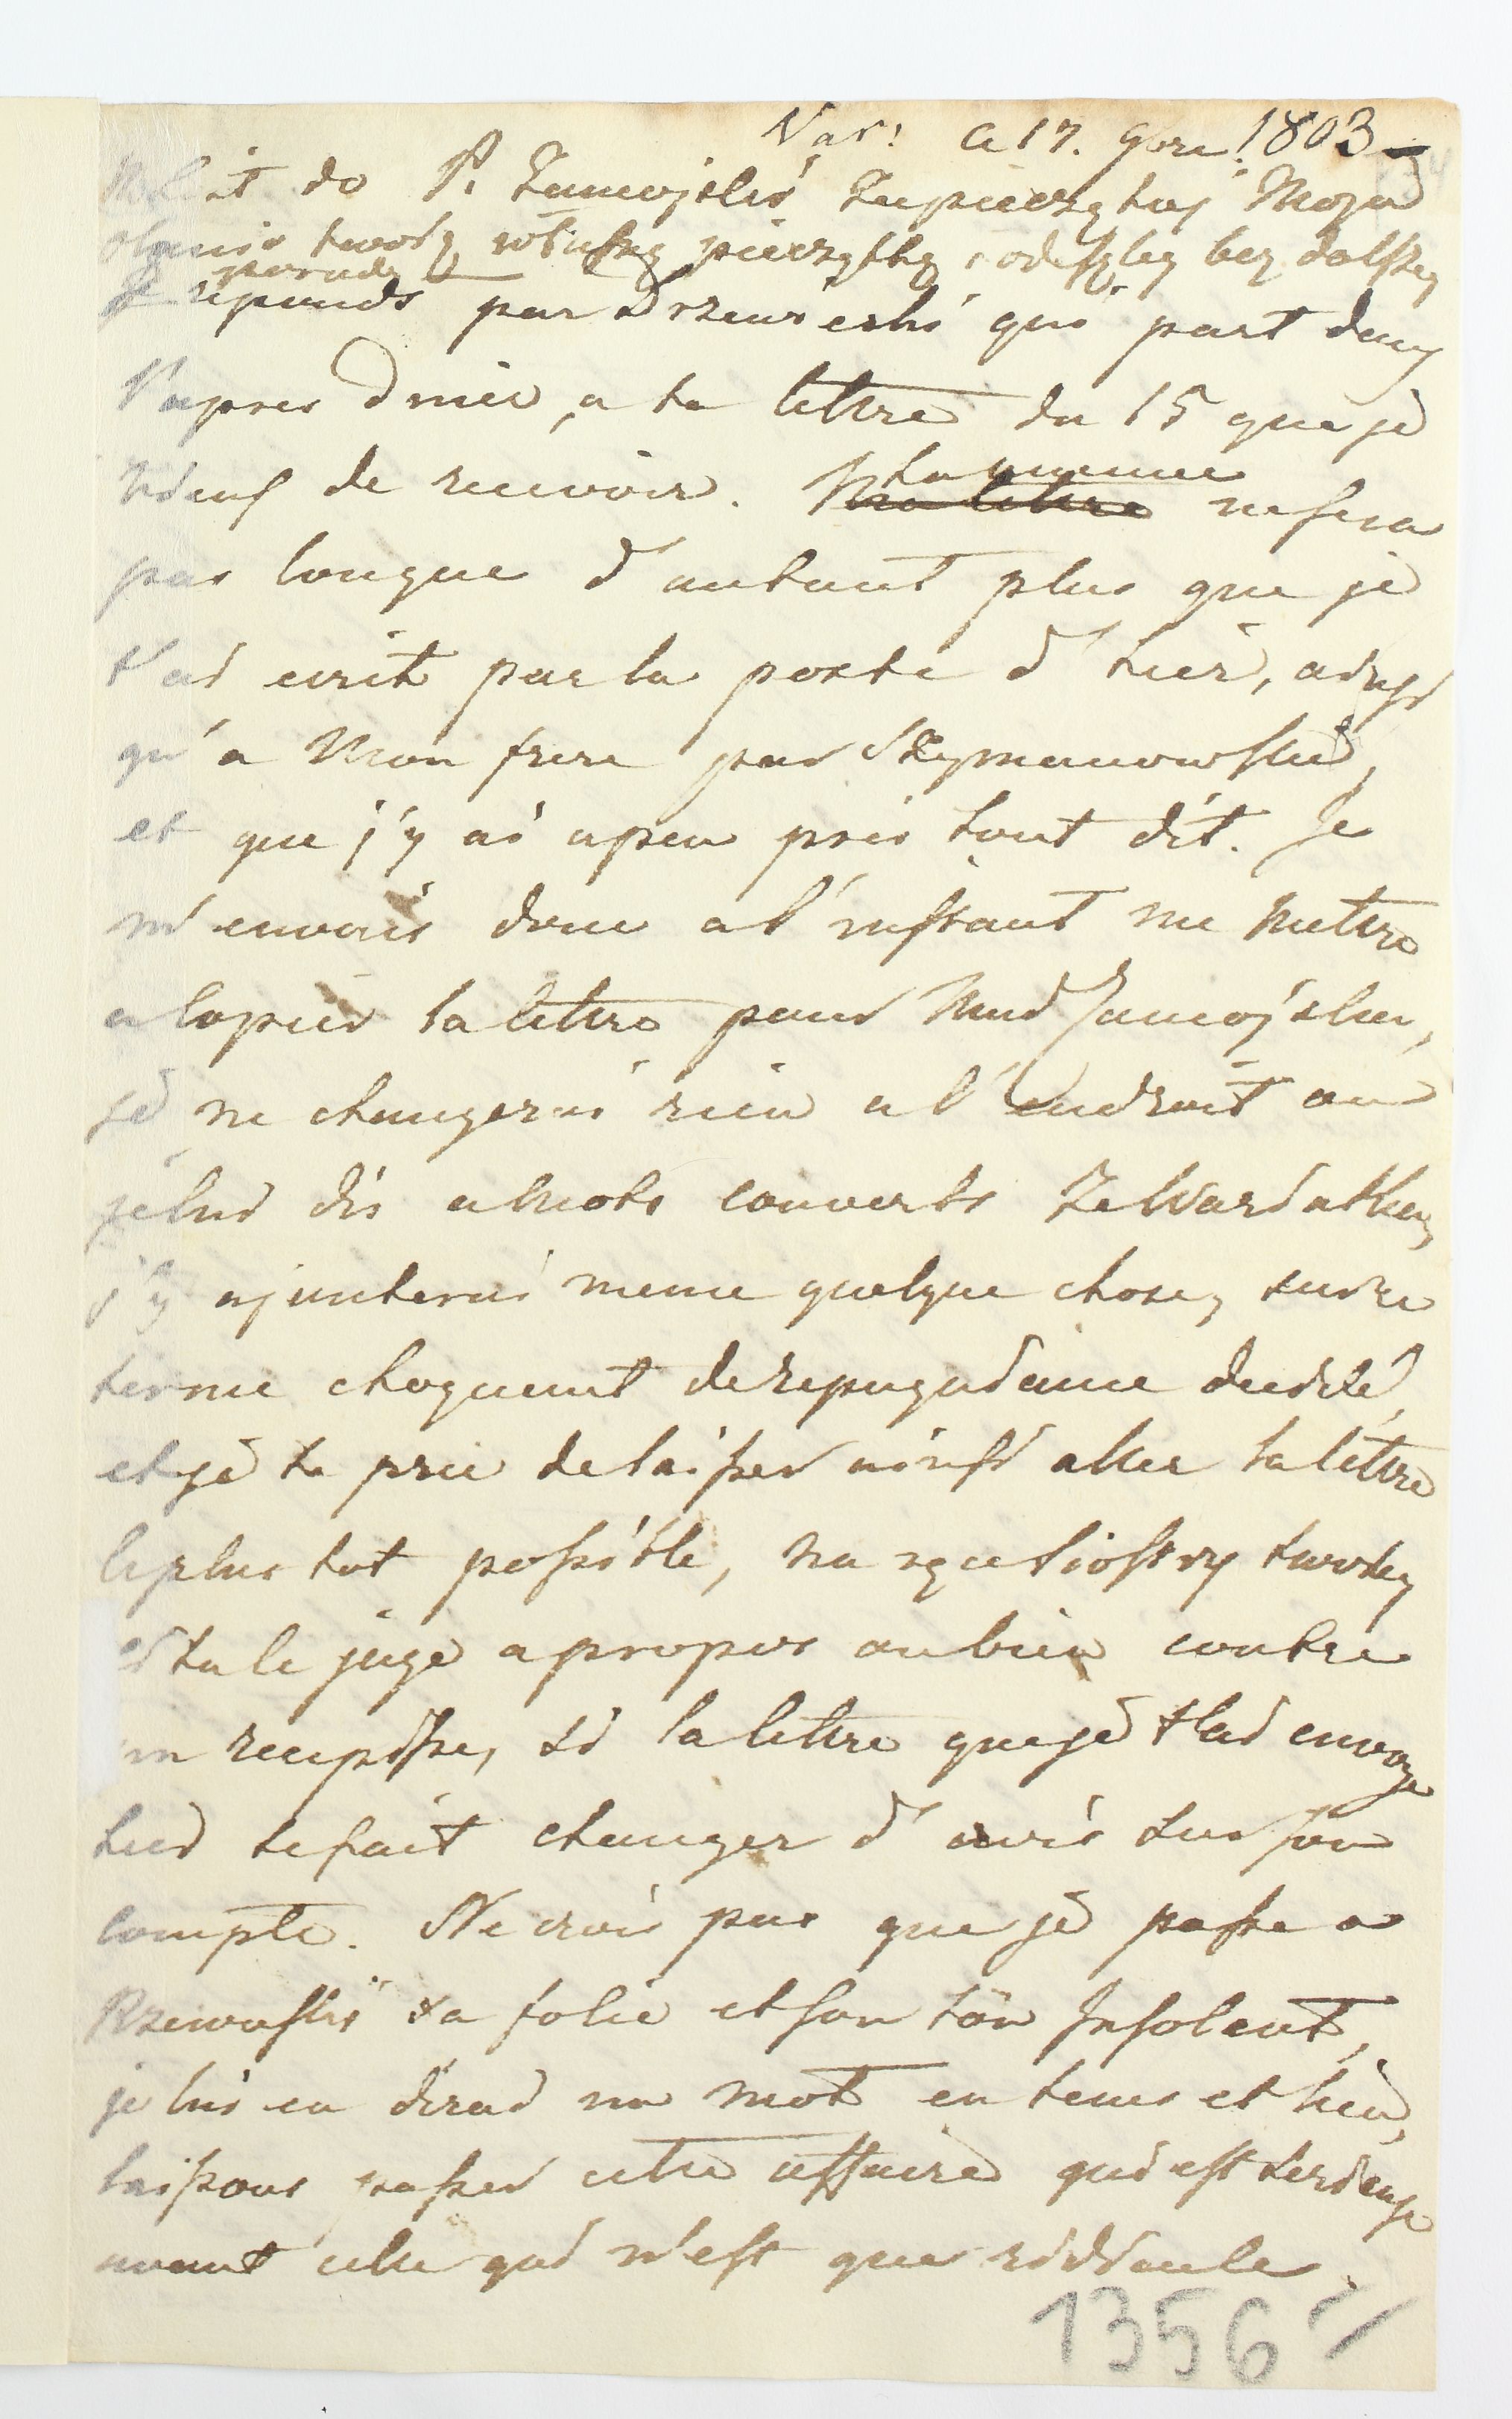 Var: ce 17. 9bre. 1803
List do P. Zamojskiey Zapieczętuj Moją
twoią własną pieczątką, i odeszley bez dalszey
porady
Je reponds par Drzewiecki qui part dans
l'apres dinée, a ta lettre du 15 que je
viens de recevoir. ta mienne
Ma lettre ne sera
pas longue d'autant plus que je
t'ai ecrit par la poste d'hier, ainsi
qu'a Mon frere par Szymanowski,
et que j'y ai apeu près tout dit. Je
m'envais donc a l'instant me Mettre
a Copier ta lettre pour Mad Zamojska,
je ne changerai rien a l'endroit ou
je lui dis a Mots couverts
j'y ajouterai meme quelque chose,
terme choquant de repugnance
et je te prie de laisser ainsi aller ta lettre
le plus tot possible,
si tu le juge a propos ou bien contre
un recepisse, si la lettre que je t'ai envoyé
hier te fait changer d'avis sur son
Compte. Ne crois pas que je passe a
Rzewuski sa folie et son ton Insolent,
je lui en dirai un mot en tems et lieu,
laissons passer cette affaire qui est serieuse
avant celle qui n'est que ridicule.
1356